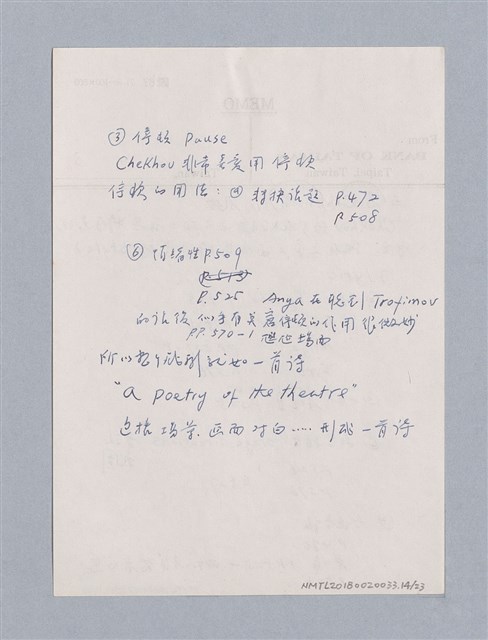 ③ 停頓 Pause
Chekhov 非常喜愛用 停頓
停頓的用法: ⓐ 轉換話題 P.472
P.508
ⓑ 預備性 P.509
(P.513)
P.525 Anya 在聽到 Trofimov
的話後
PP.570-1
停頓的作用 很微妙
所以整個戲劇就如一首詩
"a poetry of the theatre"
包括場景、畫面 對白..... 形成一首詩
MEMO
From
BANK OF TAI
Taipei, Taiwan
NMTL20180020033.14/23